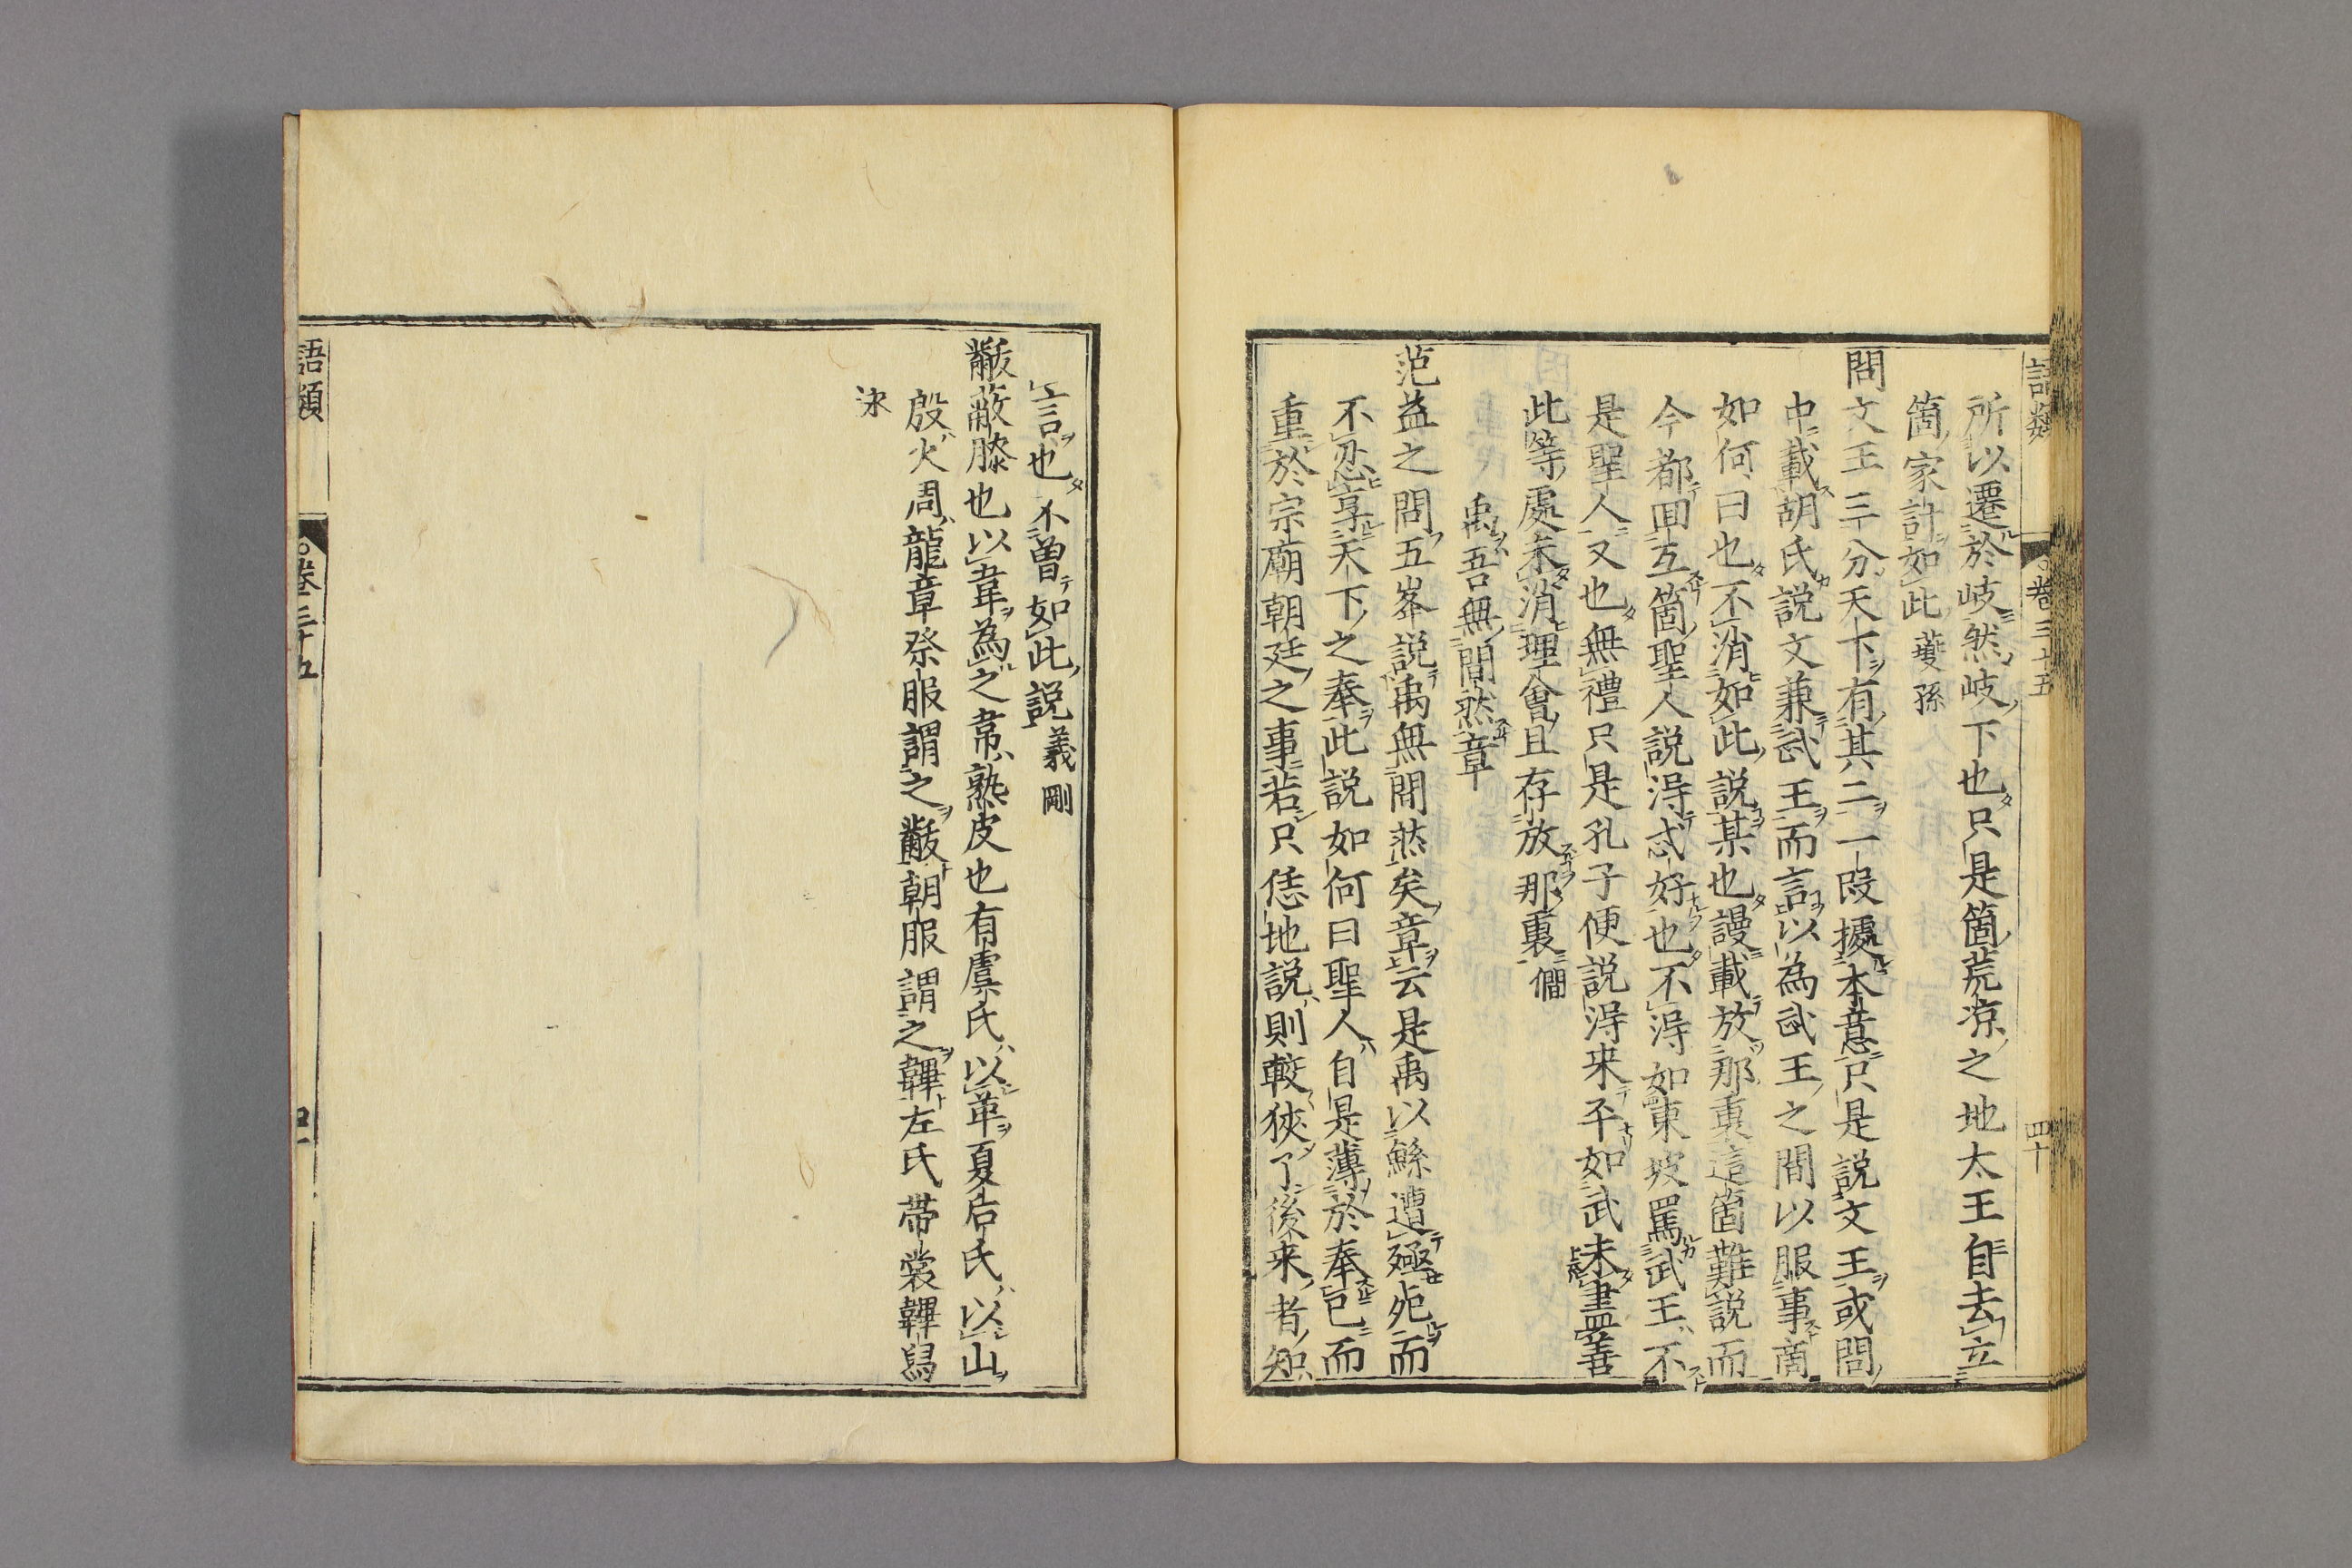 語類 卷三十五 四十
所以遷於岐然岐下也只是箇荒凉之地太王自去立
箇家計如此 䕫孫
問文王三分天下有其二一段據本意只是説文王或問
中載胡氏説文兼武王而言以為武王之間以服事商
如何曰也不消如此説某也謾載放那裏這箇難説而
今都回互箇聖人説得忒好也不得如東坡罵武王不
是聖人又也無禮只是孔子便説得来平如武未盡善
此等處未消理會且存放那裏 僩
禹吾無間然章
范益之問五峯説禹無間然矣章云是禹以鯀遭殛死而
不忍享天下之奉此説如何曰聖人自是薄於奉己而
重於宗廟朝廷之事若只恁地説則較狹了後来者知
言也不曾如此説 義剛
黻蔽膝也以韋為之韋熟皮也有虞氏以革夏后氏以山
殷火周龍章祭服謂之黻朝服謂之韠左氏帶裳韠舄
泳
語類 卷三十五 四十一